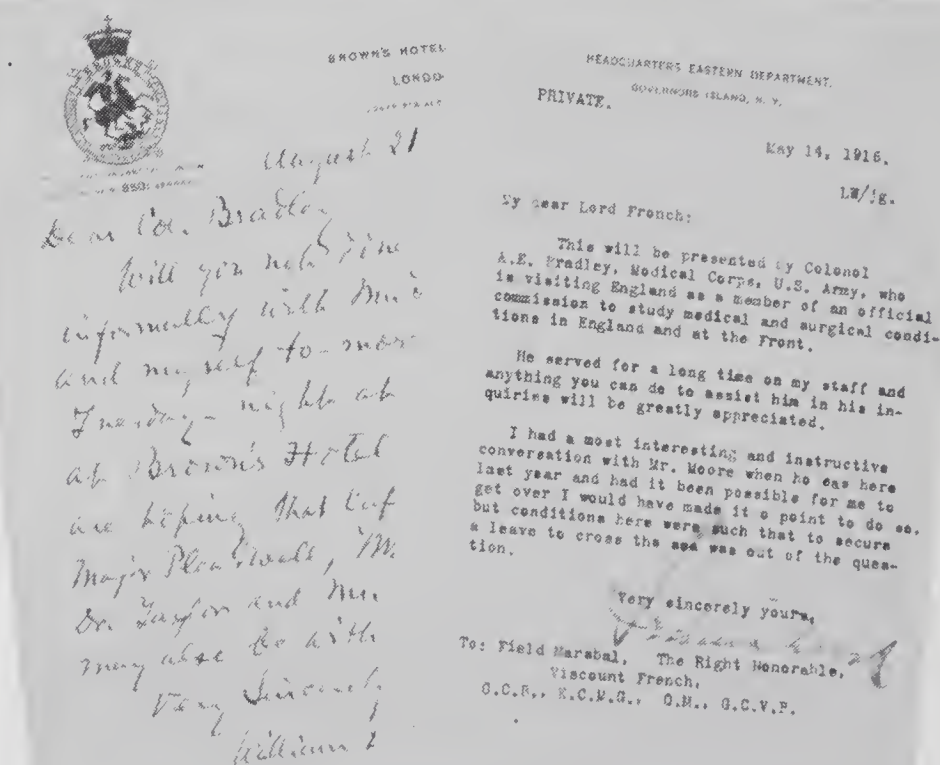 BROWN'S HOTEL
LONDO
August 21
Dear Col. Bradley
Will you not dine
informally with Mrs
and myself to-mor
Tuesday - night at
at Brown's Hotel
are hoping that
Major
Dr. Taylor and Mrs
may also be with
Very Sincerely
William
HEADQUARTERS EASTERN DEPARTMENT,
GOVERNORS ISLAND, N. Y.
PRIVATE.
May 14, 1916.
LW/
My dear Lord French:
This will be presented by Colonel
A.E. Bradley, Medical Corps, U.S. Army, who
is visiting England as a member of an official
commission to study medical and surgical condi-
tions in England and at the Front.
He served for a long time on my staff and
anything you can do to assist him in his in-
quiries will be greatly appreciated.
I had a most interesting and instructive
conversation with Mr. Moore when he eas here
last year and had it been possible for me to
get over I would have made it a point to do so,
but conditions here were such that to secure
a leave to cross the sea was out of the ques-
tion.
Very sincerely yours,
To: Field Marshal, The Right Honorable,
Viscount French,
G.C.B., K.C.M.G., O.M., G.C.V.P.